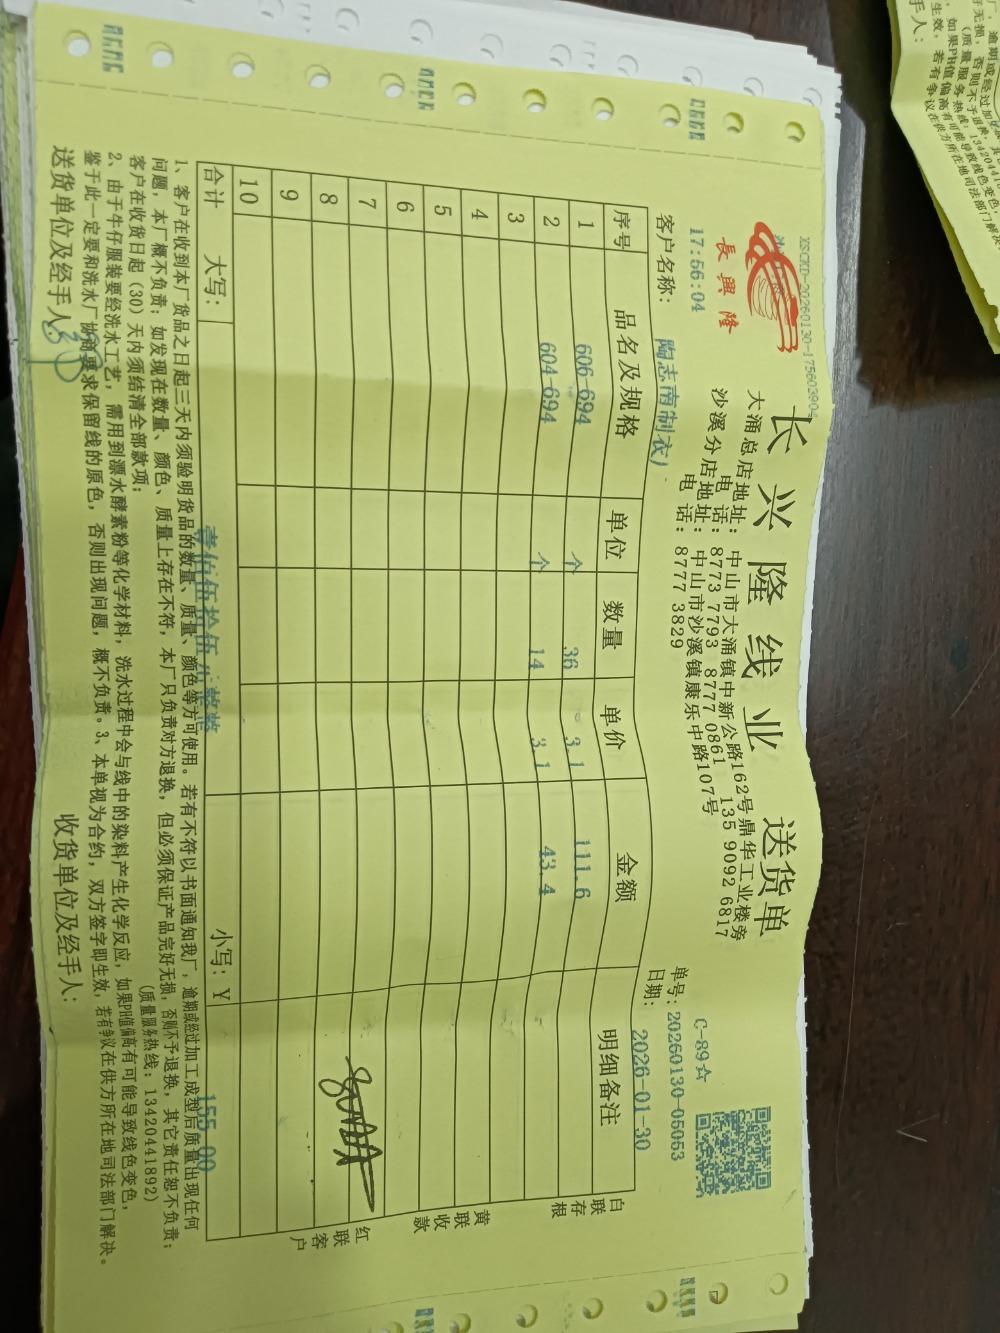 XSCKD-20260130-175603904
長興隆
长兴隆线业 送货单
大涌总店地址：中山市大涌镇中新公路162号鼎华工业楼旁
电 话：8773 7793 8777 0861 135 9092 6817
沙溪分店地址：中山市沙溪镇康乐中路107号
电 话：8777 3829
C-89☆
17:56:04
单号：20260130-05053
客户名称：陶志南制衣)
日期：2026-01-30
序号 品名及规格 单位 数量 单价 金额 明细备注
1 606-694 个 36 3.1 111.6
2 604-694 个 14 3.1 43.4
3
4
5
6
7
8
9
10
合计 大写：壹佰伍拾伍元整 小写：¥ 155.00
白联存根
黄联收款
红联客户
1、客户在收到本厂货品之日起三天内须验明货品的数量、质量、颜色等方可使用。若有不符以书面通知我厂，逾期或经过加工成型后质量出现任何
问题，本厂概不负责；如发现在数量、颜色、质量上存在不符，本厂只负责对方退换，但必须保证产品完好无损，否则不予退换，其它责任恕不负责；
客户在收货日起（30）天内须结清全部款项； （质量服务热线：13420441892）
2、由于牛仔服装要经洗水工艺，需用到漂水酵素粉等化学材料，洗水过程中会与线中的染料产生化学反应，如果PH值偏高有可能导致线色变色，
鉴于此一定要和洗水厂协商要求保留线的原色，否则出现问题，概不负责。3、本单视为合约，双方签字即生效，若有争议在供方所在地司法部门解决。
送货单位及经手人： 收货单位及经手人：